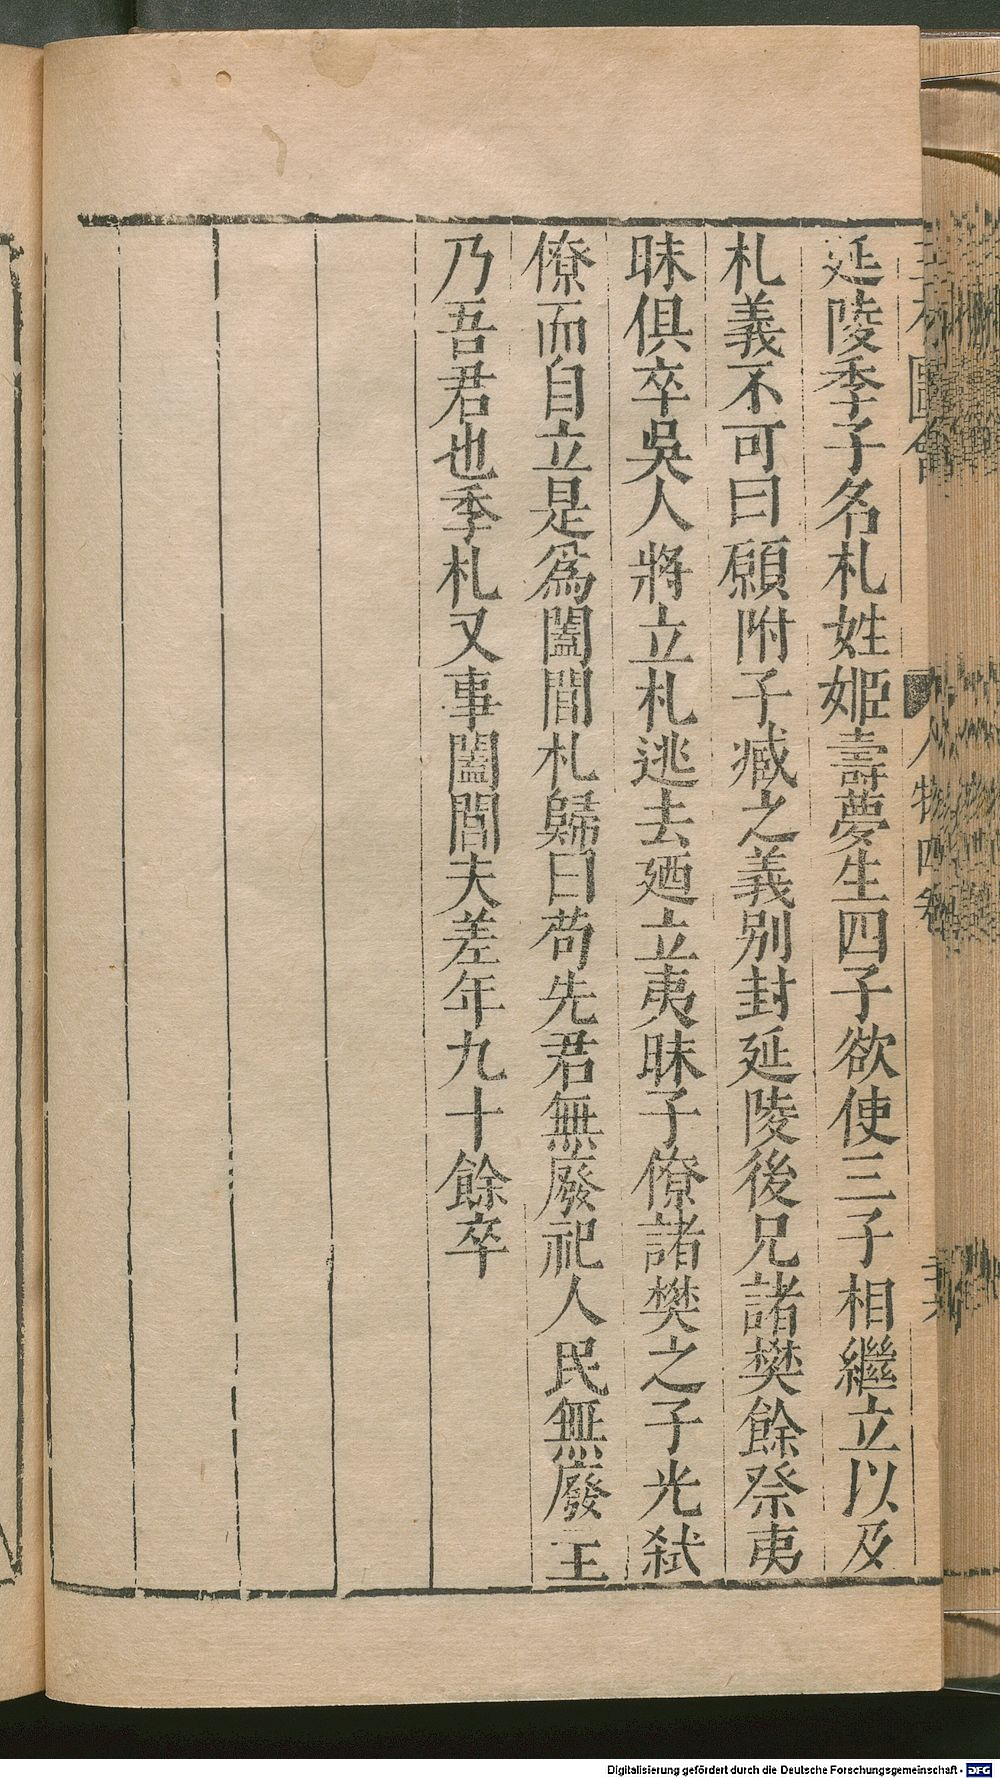 延陵季子名札姓姬壽夢生四子欲使三子相繼立以及
札義不可曰願附子臧之義別封延陵後兄諸樊餘祭夷
昧俱卒吳人將立札逃去廼立夷昧子僚諸樊之子光弒
僚而自立是爲闔閭札歸曰苟先君無廢祀人民無廢主
乃吾君也季札又事闔閭夫差年九十餘卒
圖會 人物四卷
Digitalisierung gefördert durch die Deutsche Forschungsgemeinschaft - DFG